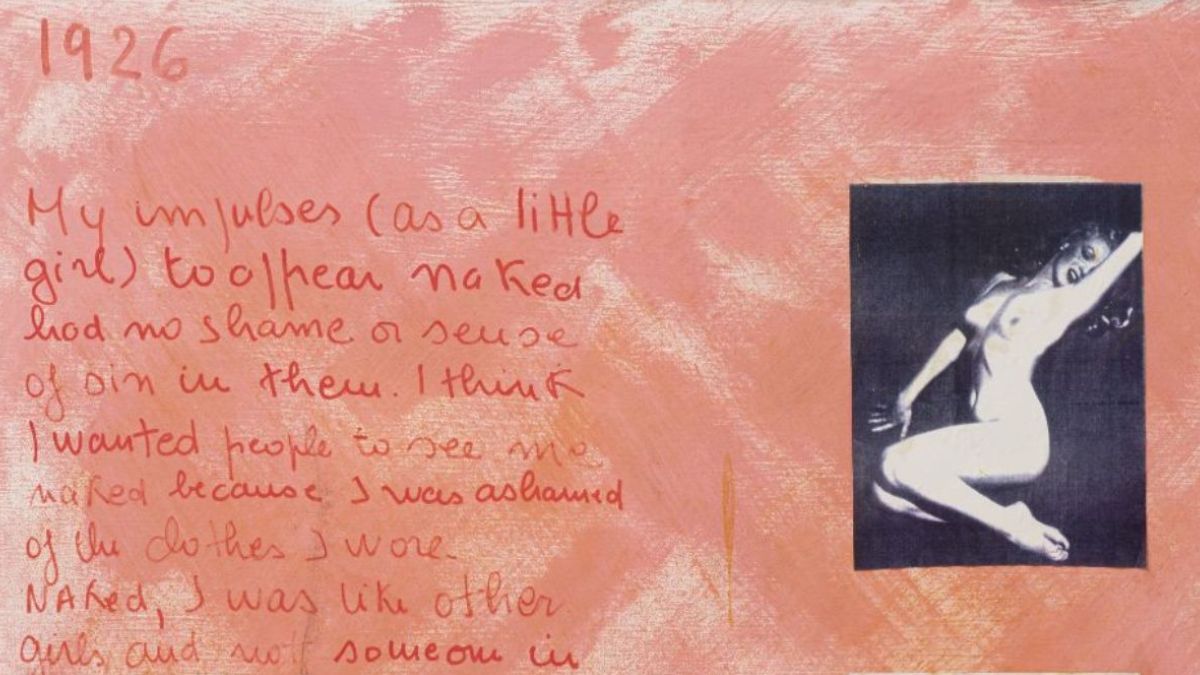 1926
My impulses (as a little
girl) to appear naked
had no shame or sense
of sin in them. I think
I wanted people to see me
naked because I was ashamed
of the clothes I wore.
NAKed, I was like other
girls and not someone in